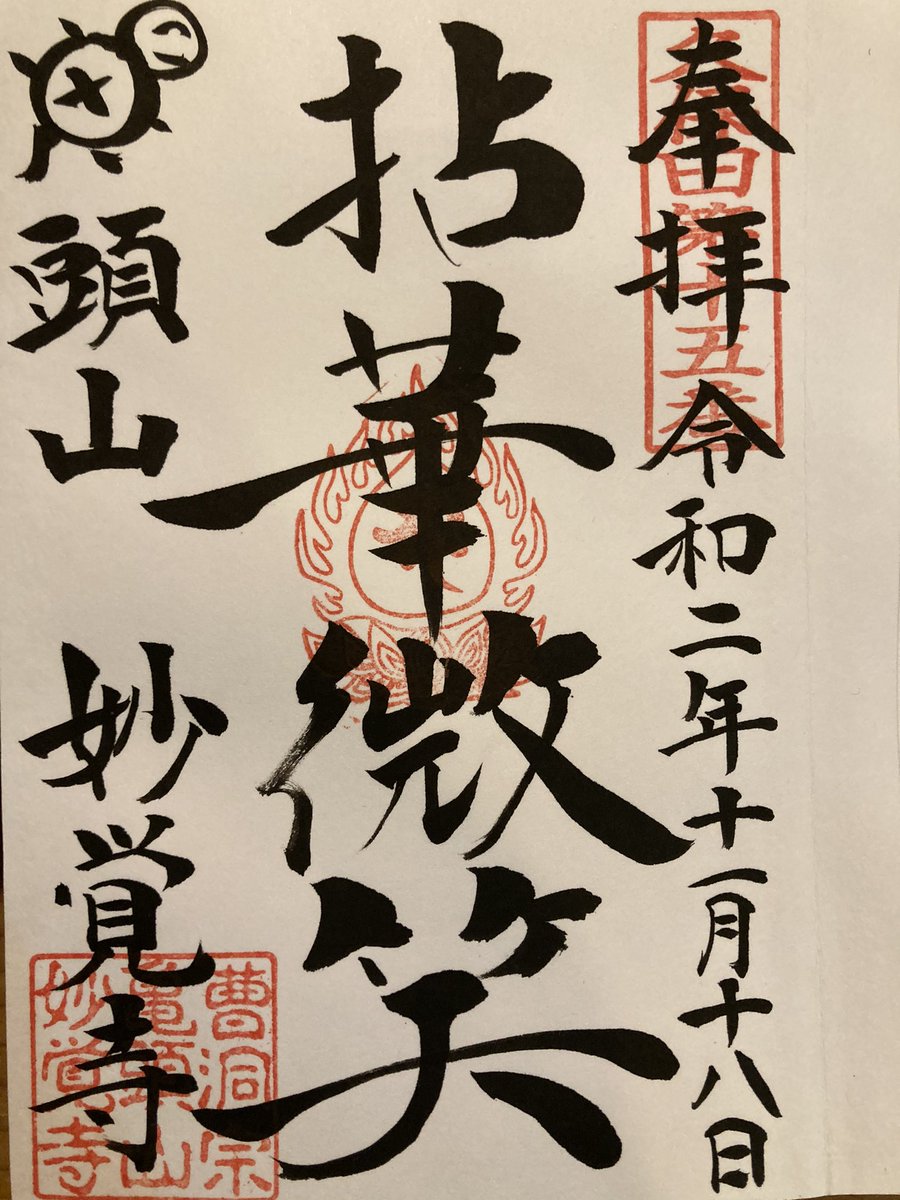 奉拝 令和二年十一月十八日
久保田第十五番
拈華微笑
頭山 妙覚寺
曹洞宗
亀頭山
妙覚寺